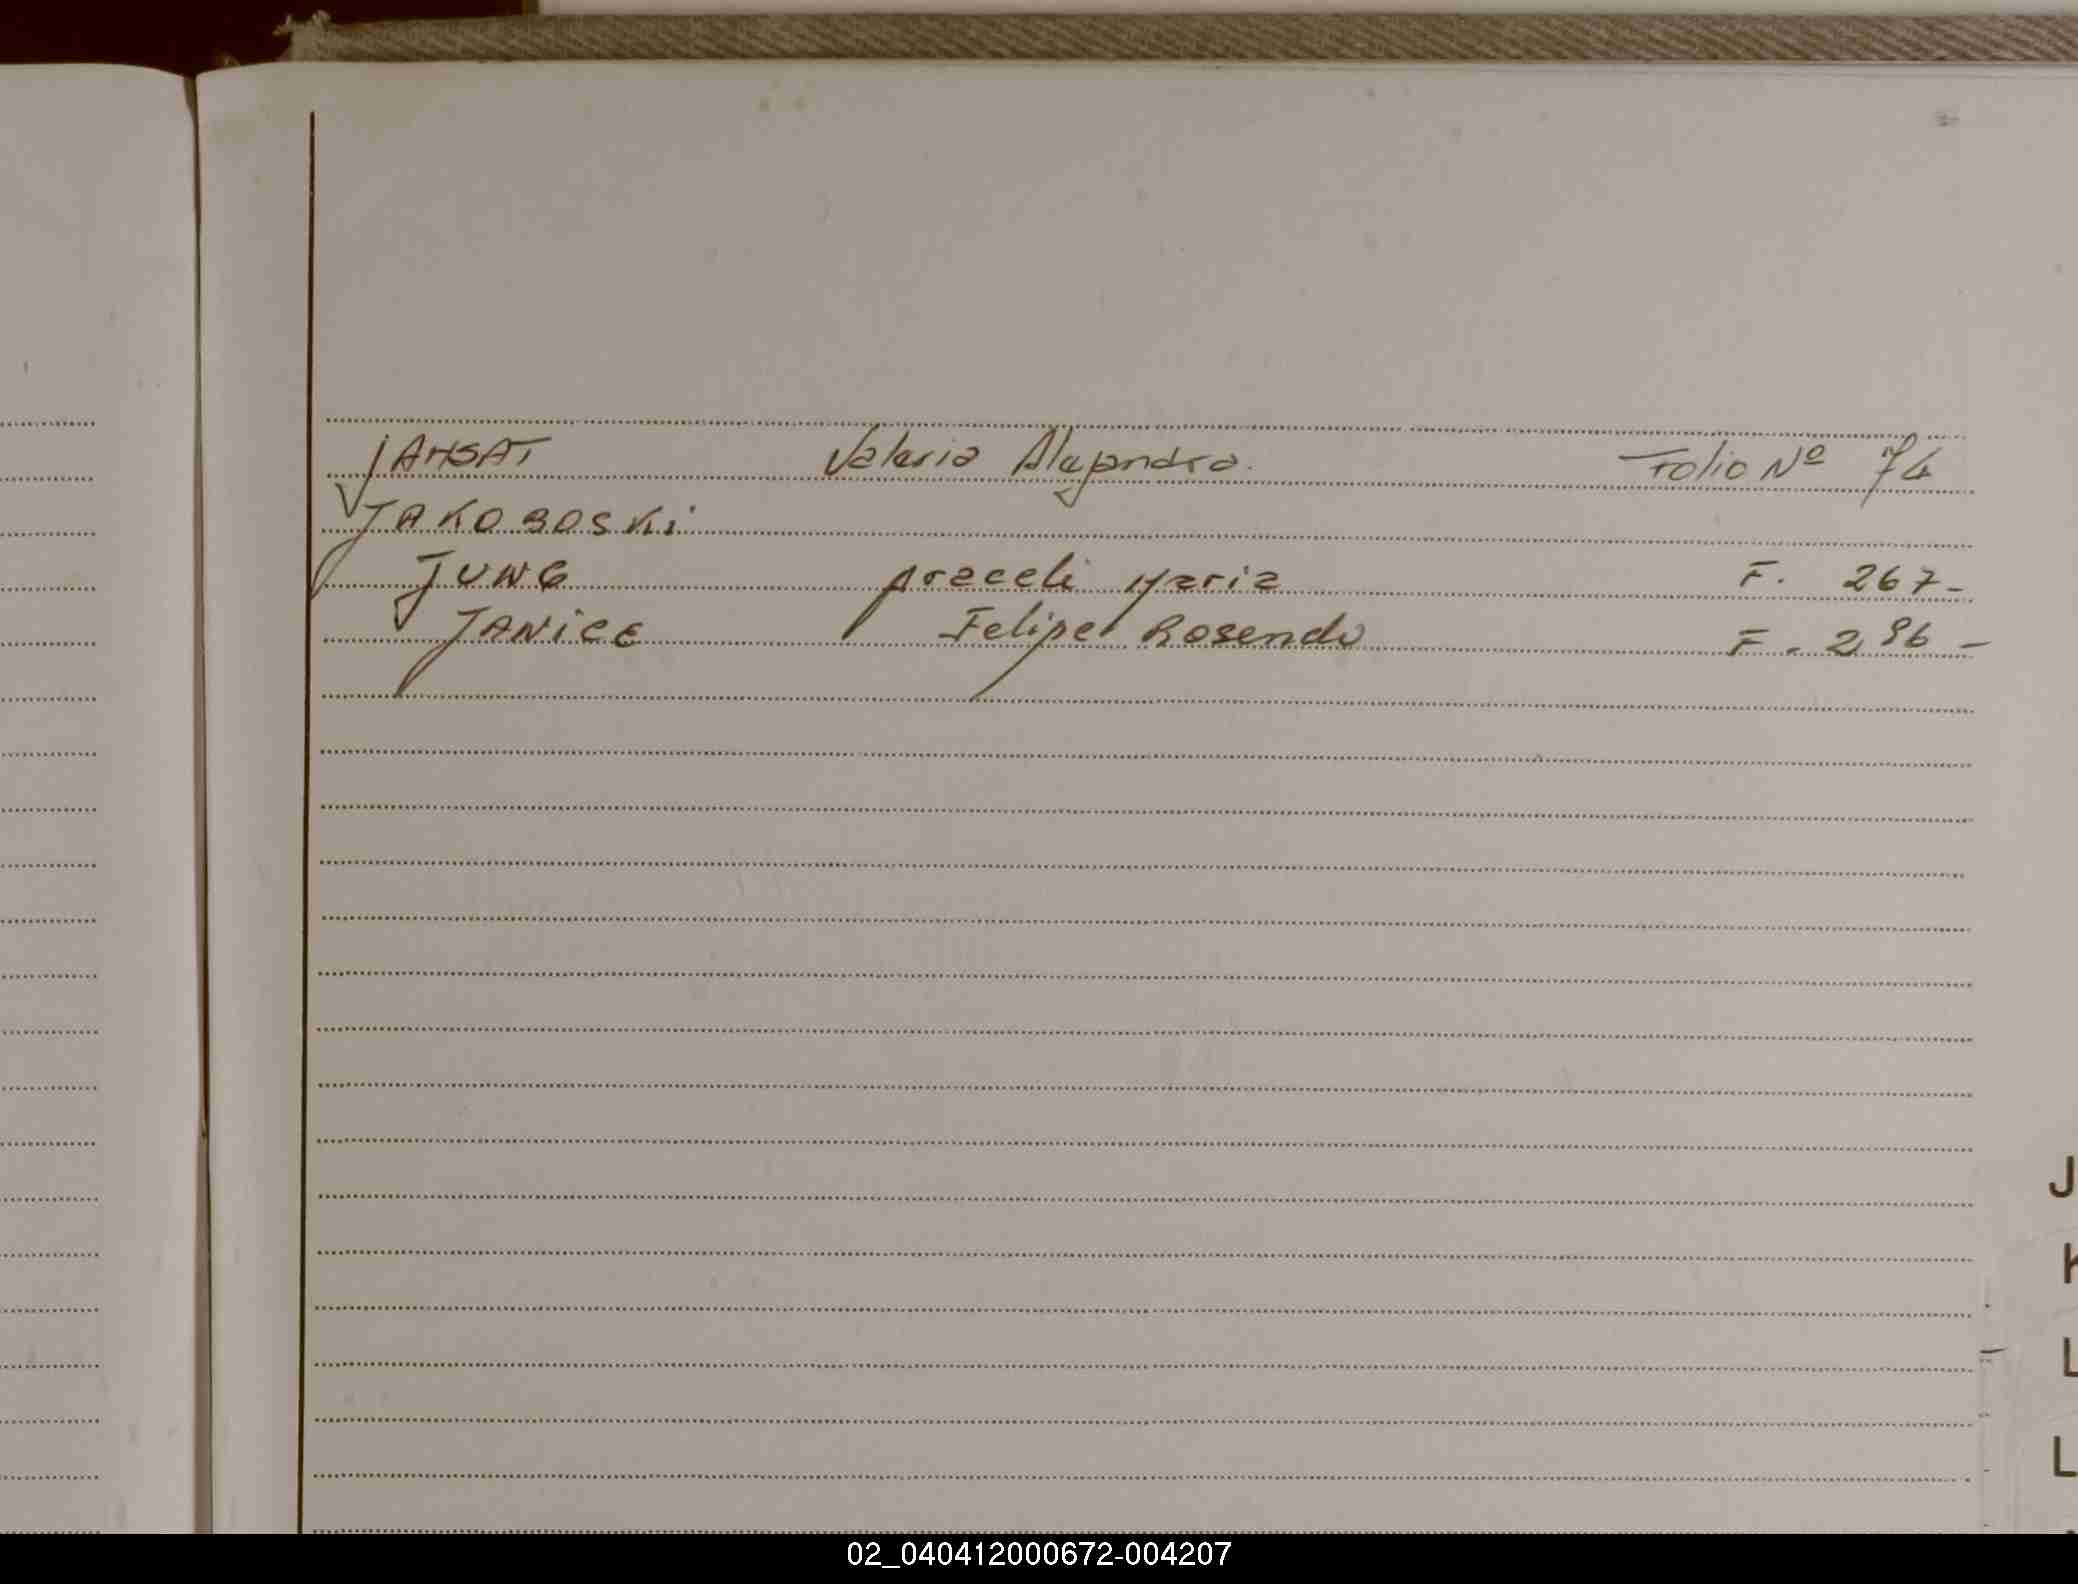 JAHSAT Valeria Alejandra. Folio Nº 74
JAKOBOSKi
JUNG Araceli Maria F. 267-
JANiCE Felipe Rosendo F. 296-
J
K
L
L
02_040412000672-004207